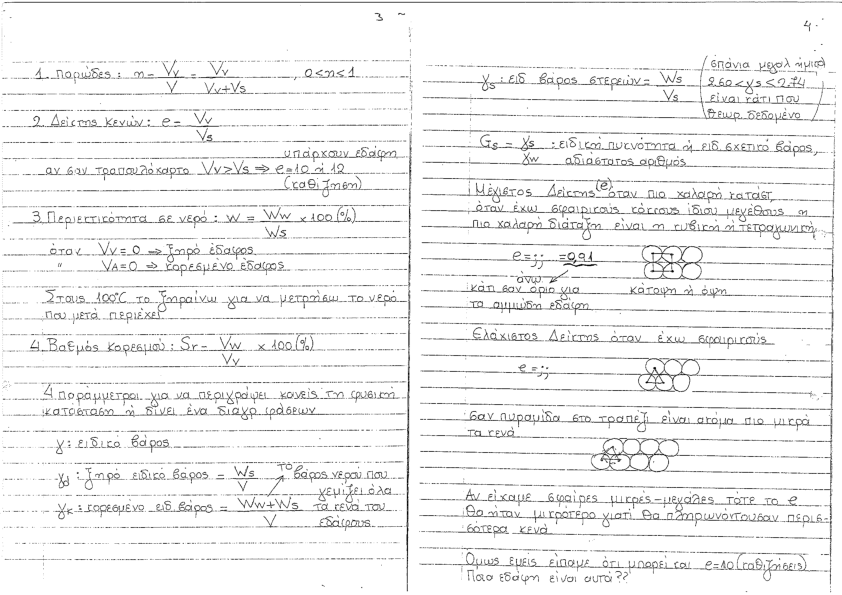 3
1. Πορώδες : n = Vv/V = Vv/(Vv+Vs) , 0<n<1
2. Δείκτης κενών : e = Vv/Vs
υπάρχουν εδάφη
αν σαν τραπουλόχαρτο Vv>Vs ⇒ e=10 ή 12
(καθίζηση)
3. Περιεκτικότητα σε νερό : w = Ww/Ws x 100 (%)
όταν Vv=0 ⇒ ξηρό έδαφος
" VA=0 ⇒ κορεσμένο έδαφος
Στους 100°C το ξηραίνω για να μετρήσω το νερό
που μετά περιέχει
4. Βαθμός κορεσμού : Sr = Vw/Vv x 100 (%)
4 παράμμετροι για να περιγράψει κανείς τη φυσική
κατάσταση ή δίνει ένα διαγρ. φάσεων
γ : ειδικό βάρος
γd : ξηρό ειδικό βάρος = Ws/V
το βάρος νερού που
γεμίζει όλα
γκ : κορεσμένο ειδ. βάρος = (Ww+Ws)/V τα κενά του
εδάφους
4.
γs : ειδ βάρος στερεών = Ws/Vs
(σπάνια μεγαλ ή μικρό
2.60<γs≤2.74
είναι κάτι που
θεωρ. δεδομένο)
Gs = γs/γw : ειδική πυκνότητα ή ειδ. σχετικό βάρος,
αδιάστατος αριθμός
Μέγιστος Δείκτης (e) όταν πιο χαλαρή κατάστ,
όταν έχω σφαιρικούς κόκκους ίδιου μεγέθους η
πιο χαλαρή διάταξη είναι η κυβική ή τετραγωνική
e=;; =0,91
άνω
κάτι σαν όριο για κάτοψη ή όψη
τα αμμώδη εδάφη
Ελάχιστος Δείκτης όταν έχω σφαιρικούς
e=;;
σαν πυραμίδα στο τραπέζι είναι ακόμα πιο μικρά
τα κενά
Αν είχαμε σφαίρες μικρές-μεγάλες τότε το e
θα ήταν μικρότερο γιατί θα πληρωνόντουσαν περισ-
σότερα κενά
Όμως εμείς είπαμε ότι μπορεί και e=10 (καθιζήσεις)
Ποια εδάφη είναι αυτά??